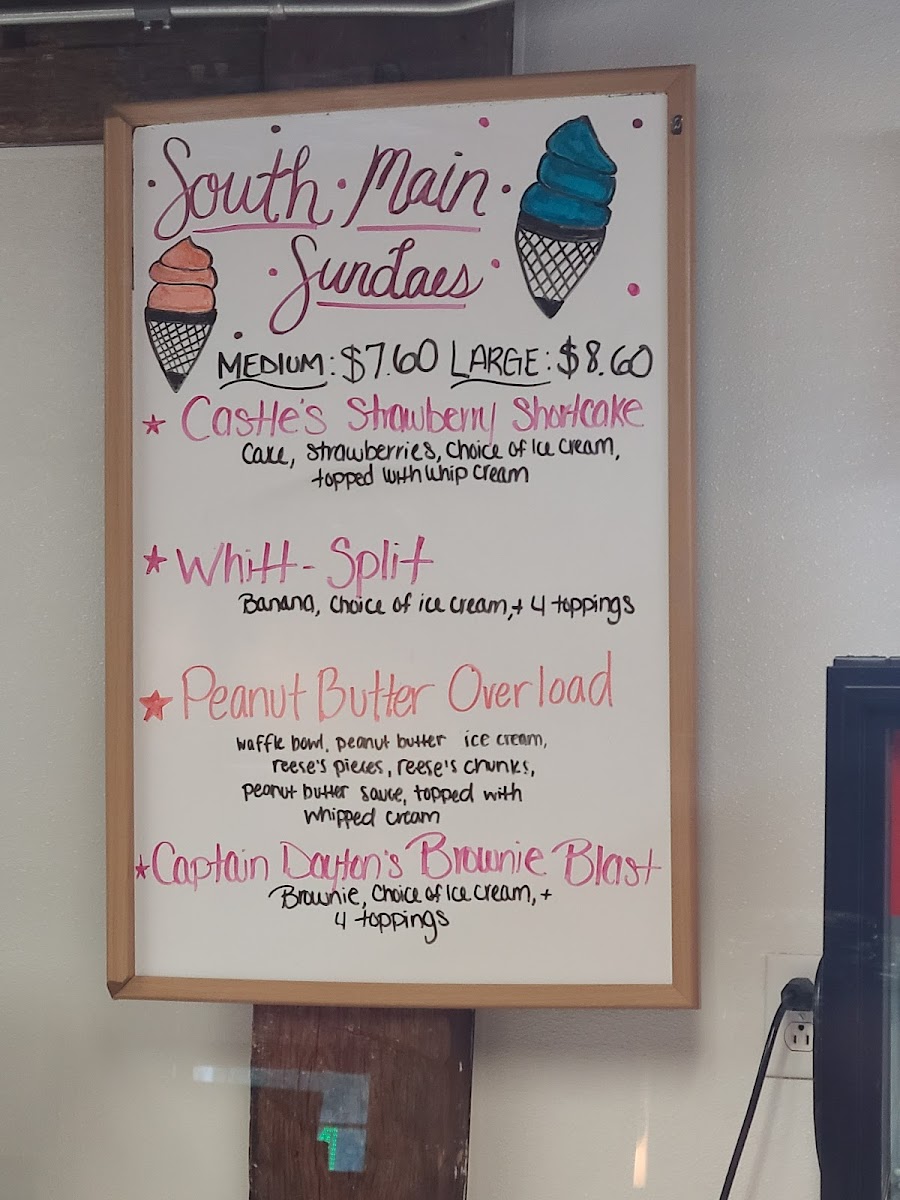 South Main
Sundaes
MEDIUM: $7.60 LARGE: $8.60
Castle's Strawberry Shortcake
Cake, Strawberries, Choice of Ice Cream,
topped with whip cream
Whitt-Split
Banana, Choice of ice cream, + 4 toppings
Peanut Butter Overload
waffle bowl, peanut butter ice cream,
reese's pieces, reese's chunks,
peanut butter sauce, topped with
whipped cream
Captain Dayton's Brownie Blast
Brownie, Choice of Ice Cream, +
4 toppings
1